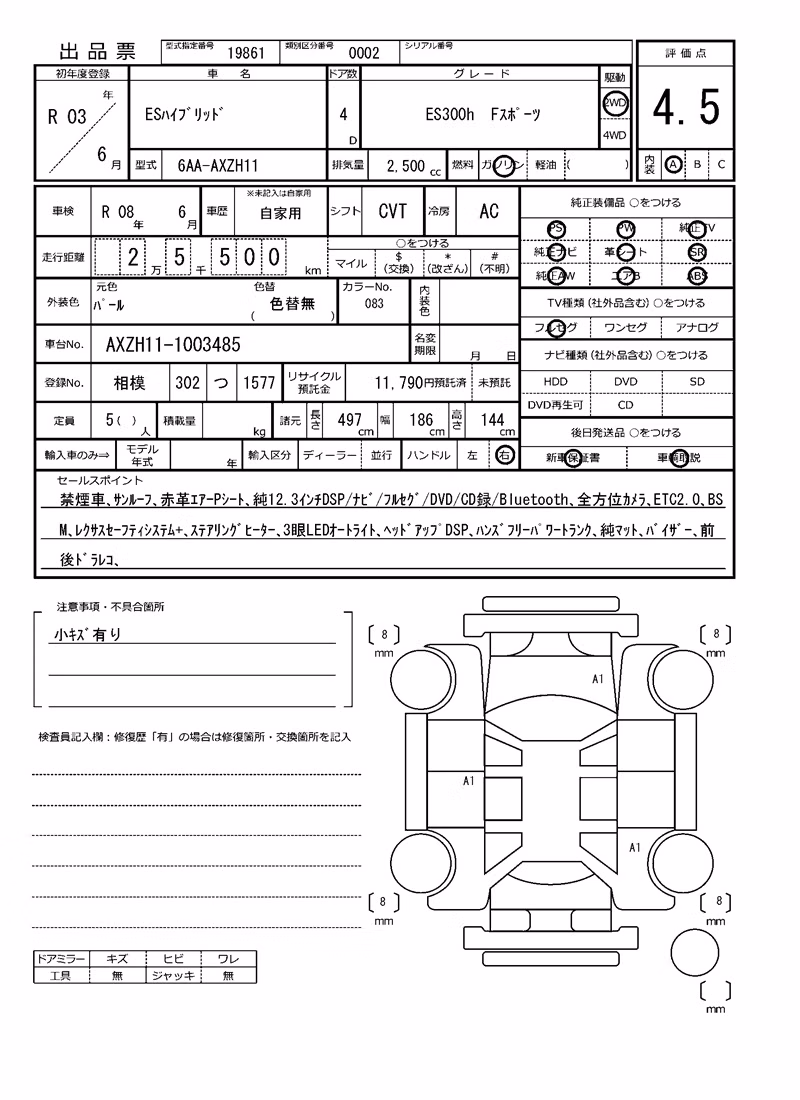 出品票 型式指定番号 19861 類別区分番号 0002 シリアル番号
評価点
4.5
内装 A B C
初年度登録 車名 ドア数 グレード 駆動
R 03 年 6 月 ESハイブリッド 4 D ES300h Fスポーツ 2WD
4WD
型式 6AA-AXZH11 排気量 2,500 cc 燃料 ガソリン 軽油 ( )
車検 R 08 年 6 月 車歴 ※未記入は自家用 自家用 シフト CVT 冷房 AC
走行距離 2 万 5 千 5 0 0 km
○をつける
マイル $(交換) *(改ざん) #(不明)
外装色 元色 パール 色替 ( 色替無 ) カラーNo. 083 内装色
車台No. AXZH11-1003485 名変期限 月 日
登録No. 相模 302 つ 1577 リサイクル預託金 11,790円預託済 未預託
定員 5( ) 人 積載量 kg 諸元 長さ 497 cm 幅 186 cm 高さ 144 cm
輸入車のみ⇒ モデル年式 年 輸入区分 ディーラー 並行 ハンドル 左 右
純正装備品 ○をつける
PS PW 純正TV
純正ナビ 革シート SR
純正AW エアB ABS
TV種類(社外品含む)○をつける
フルセグ ワンセグ アナログ
ナビ種類(社外品含む)○をつける
HDD DVD SD
DVD再生可 CD
後日発送品 ○をつける
新車保証書 車輌取説
セールスポイント
禁煙車、サンルーフ、赤革エアーPシート、純12.3インチDSP/ナビ/フルセグ/DVD/CD録/Bluetooth、全方位カメラ、ETC2.0、BS
M、レクサスセーフティシステム+、ステアリングヒーター、3眼LEDオートライト、ヘッドアップDSP、ハンズフリーパワートランク、純マット、バイザー、前
後ドラレコ、
注意事項・不具合箇所
小キズ有り
検査員記入欄：修復歴「有」の場合は修復箇所・交換箇所を記入
8 mm
8 mm
A1
A1
A1
8 mm
8 mm
mm
ドアミラー キズ ヒビ ワレ
工具 無 ジャッキ 無